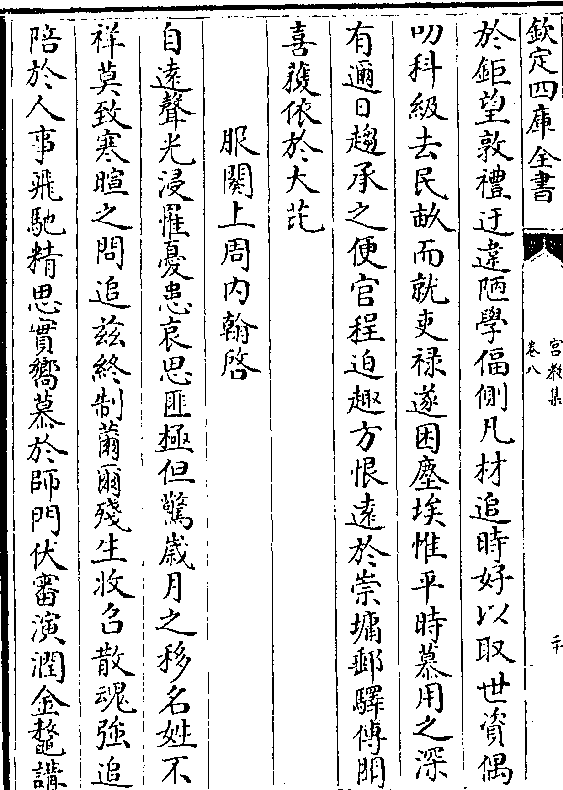 欽定四庫全書
宮教集
卷八
二十
於鉅望敦禮迂違陋學偪側凡材追時好以取世資偶
叨科級去民畝而就吏禄遂困塵埃惟平時慕用之深
有邇日趨承之便官程迫趣方恨遠於崇墉郵驛傳聞
喜獲依於大芘
服闋上周内翰啓
自遠聲光浸罹憂患哀思匪極但驚歳月之移名姓不
祥莫致寒暄之問追兹終制薾爾殘生收召散魂強追
陪於人事飛馳精思實嚮慕於師門伏審演潤金鼇講